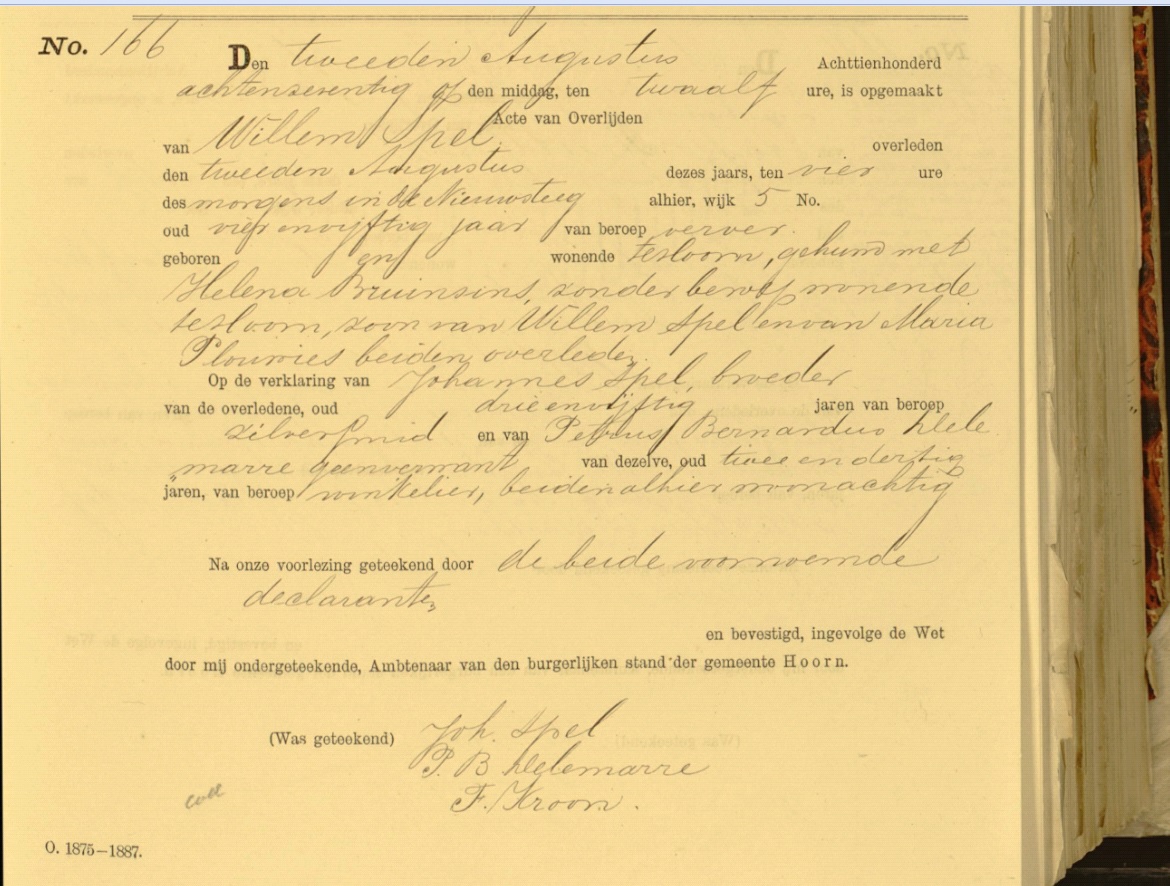 No. 166
Den tweeden Augustus Achttienhonderd
achtenzeventig op den middag, ten twaalf ure, is opgemaakt
Acte van Overlijden
van Willem Spel overleden
den tweeden Augustus dezes jaars, ten vier ure
des morgens in de Nieuwsteeg alhier, wijk 5 No.
oud vier envijftig jaar van beroep verver.
geboren en wonende te Hoorn, gehuwd met
Helena Bruinsins, zonder beroep wonende
te Hoorn, zoon van Willem Spel en van Maria
Plouvies beiden overleden.
Op de verklaring van Johannes Spel, broeder
van de overledene, oud drieenvijftig jaren van beroep
zilversmid en van Petrus Bernardus Dele
marre geenverwant van dezelve, oud twee en dertig
jaren, van beroep winkelier, beiden alhier woonachtig
Na onze voorlezing geteekend door de beide voornoemde
declaranten
en bevestigd, ingevolge de Wet
door mij ondergeteekende, Ambtenaar van den burgerlijken stand der gemeente Hoorn.
(Was geteekend) Joh. Spel
P. B Delemarre
F. Kroon.
coll
O. 1875—1887.